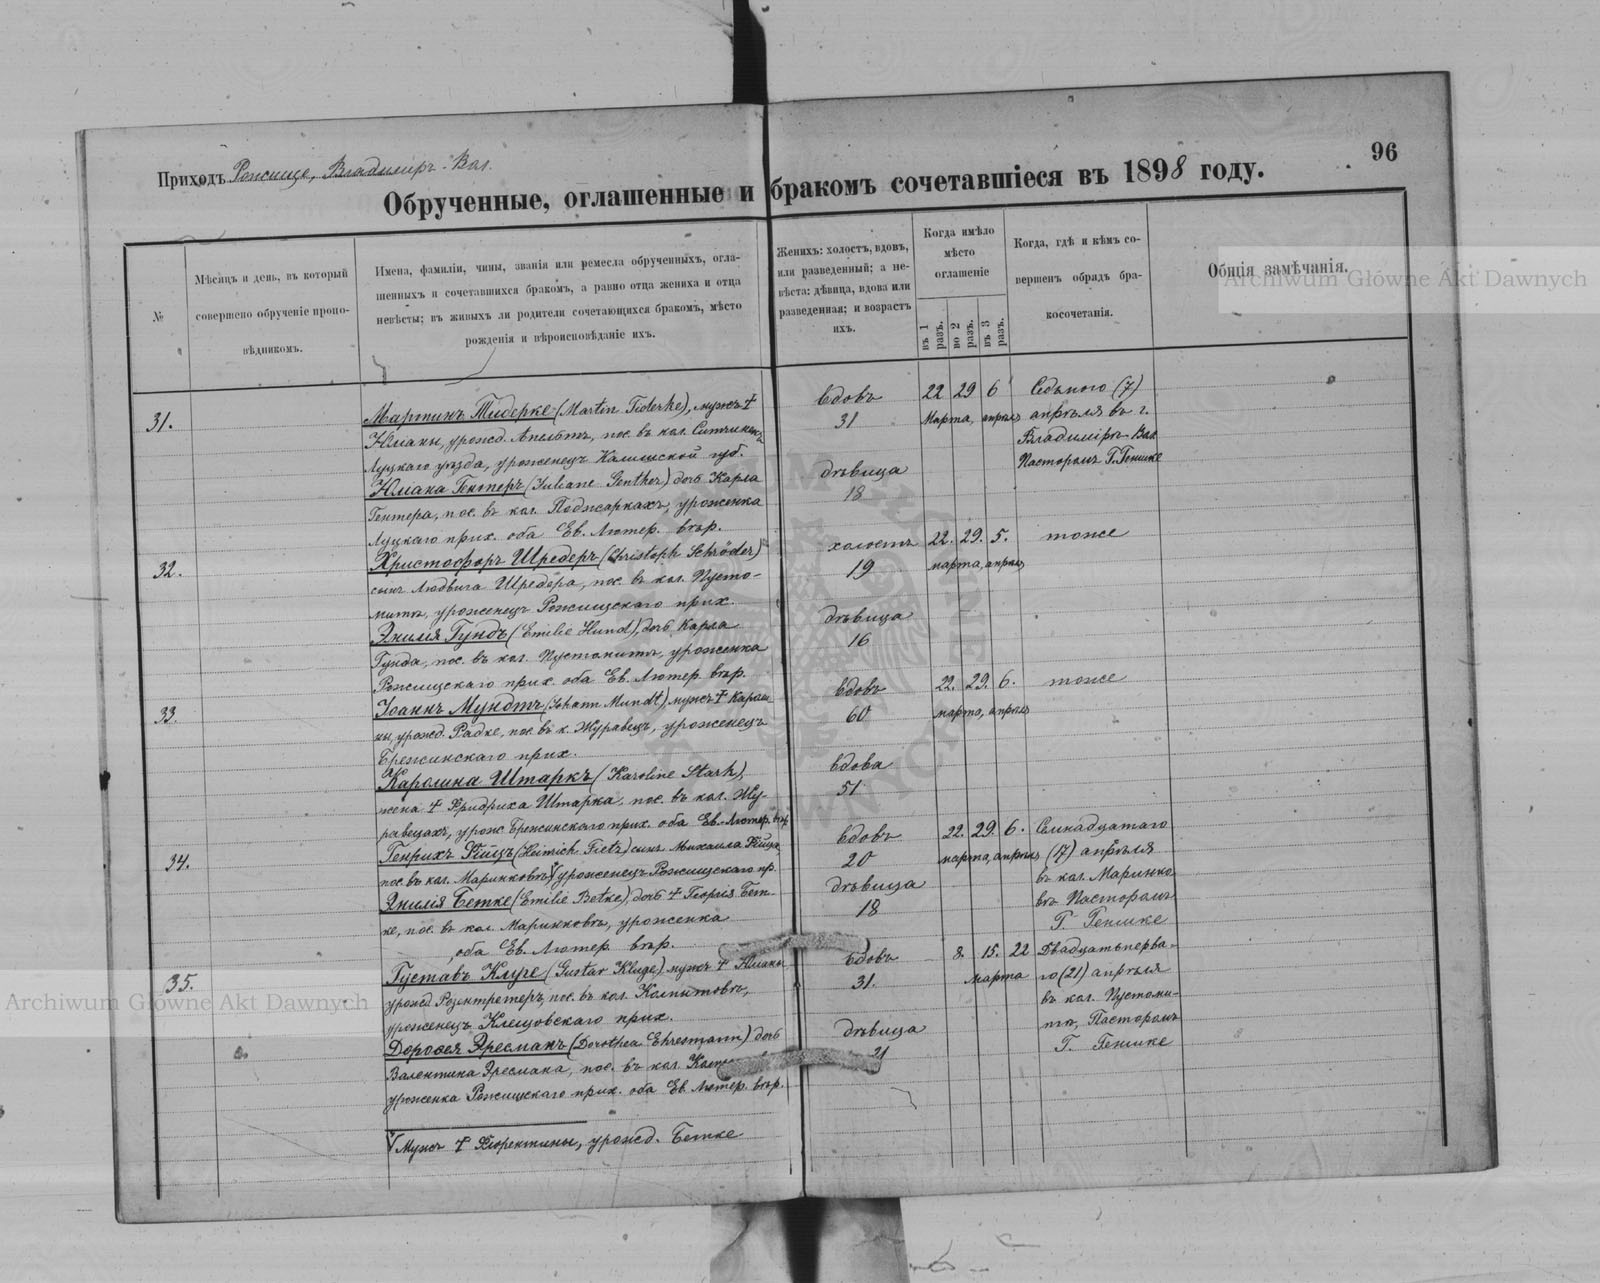 96
Приходъ Рожище, Владимиръ-Вол.
Обрученные, оглашенные и бракомъ сочетавшіеся въ 1898 году.
№
Мѣсяцъ и день, въ который
совершено обрученіе пропо-
вѣдникомъ.
Имена, фамиліи, чины, званія или ремесла обрученныхъ, огла-
шенныхъ и сочетавшихся бракомъ, а равно отца жениха и отца
невѣсты; въ живыхъ ли родители сочетающихся бракомъ, мѣсто
рожденія и вѣроисповѣданіе ихъ.
Женихъ: холостъ, вдовъ,
или разведенный; а не-
вѣста: дѣвица, вдова или
разведенная; и возрастъ
ихъ.
Когда имѣло
мѣсто
оглашеніе
въ 1 разъ.
во 2 разъ.
въ 3 разъ.
Когда, гдѣ и кѣмъ со-
вершенъ обрядъ бра-
косочетанія.
Общія замѣчанія.
Archiwum Główne Akt Dawnych
31.
Мартинъ Тидерке (Martin Tiderke), мужъ †
Юліаны, урожд. Апельтъ, пос. въ кол.
Луцкаго уѣзда, уроженецъ Калишской губ.
Юліана Гентеръ (Juliane Genther) дочь Карла
Гентера, пос. въ кол. Поджаркахъ, уроженка
Луцкаго прих. оба Ев. Лютер. вѣр.
вдовъ
31
дѣвица
18
22 29 6
Марта, апрѣля
Седьмого (7)
апрѣля въ г.
Владимірѣ-Вол.
Пасторомъ Г. Геншке
32.
Христофоръ Шредеръ (Christoph Schröder)
сынъ Людвига Шредера, пос. въ кол. Пусто-
митѣ, уроженецъ Рожищскаго прих.
Эмилія Гундъ (Emilie Hund), дочь Карла
Гунда, пос. въ кол. Пустомитѣ, уроженка
Рожищскаго прих. оба Ев. Лютер. вѣр.
холостъ
19
дѣвица
16
22. 29. 5.
марта, апрѣля
тоже
33.
Іоаннъ Мундтъ (Johann Mundt) мужъ † Кароли-
ны, урожд. Радке, пос. въ к. Журавецъ, уроженецъ
Брежинскаго прих.
Каролина Штаркъ (Karoline Stark),
жена † Фридриха Штарка, пос. въ кол. Жу-
равецахъ, урож. Брежинскаго прих. оба Ев.-Лютер. вѣр.
вдовъ
60
вдова
51
22. 29. 6.
марта, апрѣля
тоже
34.
Генрихъ Фицъ (Heinrich Fietz) сынъ Михаила Фица
пос. въ кол. Маринковѣ уроженецъ Рожищскаго пр.
Эмилія Бетке (Emilie Betke), дочь † Георгія Бет-
ке, пос. въ кол. Маринковѣ, уроженка
, оба Ев. Лютер. вѣр.
вдовъ
20
дѣвица
18
22. 29. 6.
марта, апрѣля
Семнадцатаго
(17) апрѣля
въ кол. Маринко-
вѣ Пасторомъ
Г. Геншке
35.
Густавъ Клуге (Gustav Kluge) мужъ † Юліаны
урожд. пос. въ кол. Копытовѣ,
уроженецъ Клещовскаго прих.
Доротея Эресманъ (Dorothea Ehresmann) дочь
Валентина Эресмана, пос. въ кол.
уроженка Рожищскаго прих. оба Ев. Лютер. вѣр.
вдовъ
31.
дѣвица
21
8. 15. 22
марта
Двадцатьперва-
го (21) апрѣля
въ кол. Пустоми-
тѣ, Пасторомъ
Г. Геншке
Archiwum Główne Akt Dawnych
Мужъ † Флорентины, урожд. Бетке